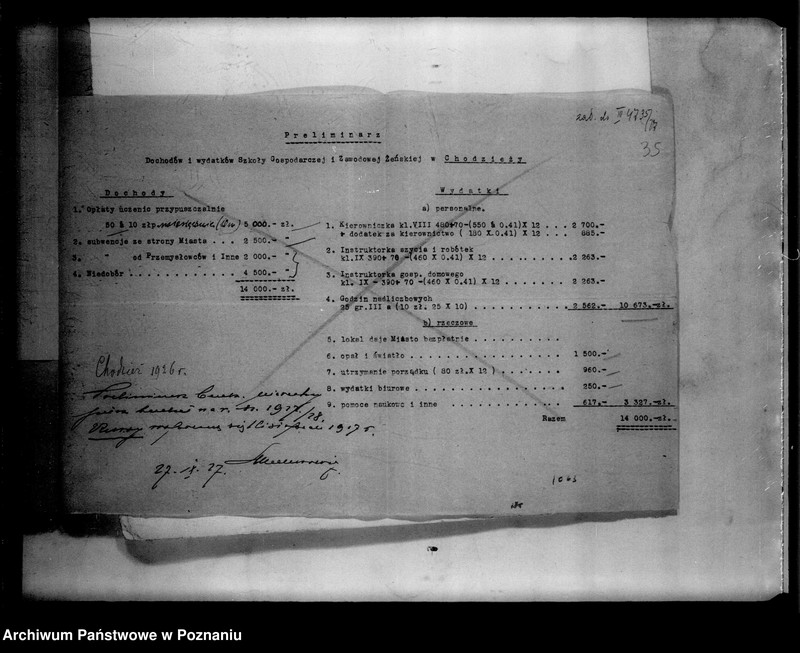 zał. do III 4735/27
35
Preliminarz
Dochodów i wydatków Szkoły Gospodarczej i Zawodowej Żeńskiej w Chodzieży
Dochody
1. Opłaty uczenic przypuszczalnie
50 à 10 złp. miesięcznie 5 000.- zł.
2. subwencje ze strony Miasta . . . 2 500.- "
3. " od Przemysłowców i Inne 2 000.- "
4. Niedobór . . . . . . . . . . . 4 500.- "
14 000.- zł.
Wydatki
a) personalne.
1. Kierowniczka kl.VIII 480+70-(550 à 0.41)X 12 . . . 2 700.-
+ dodatek za kierownictwo ( 180 X 0.41) X 12 . . . 885.-
2. Instruktorka szycia i robótek
kl.IX 390+ 70 -(460 X 0.41) X 12 . . . . . . . . . . 2 263.-
3. Instruktorka gosp. domowego
kl. IX - 390+ 70 -(460 X 0.41) X 12 . . . . . . . . 2 263.-
4. Godzin nadliczbowych
25 gr.III a (10 zł. 25 X 10) . . . . . . . . . . . . 2 562.- 10 673.-zł.
b) rzeczowe
5. lokal daje Miasto bezpłatnie . . . . . . . . . .
6. opał i światło . . . . . . . . . . . . . . . . . 1 500.-
7. utrzymanie porządku ( 80 zł.X 12 ) . . . . . . . 960.-
8. wydatki biurowe . . . . . . . . . . . . . . . . 250.-
9. pomoce naukowe i inne . . . . . . . . . . . . 617.- 3 327.-zł.
Razem 14 000.-zł.
Chodzież 1926 r.
Preliminarz
na r. 1927/28.
Kursy 1927 r.
27. IX. 27.
1063
Archiwum Państwowe w Poznaniu